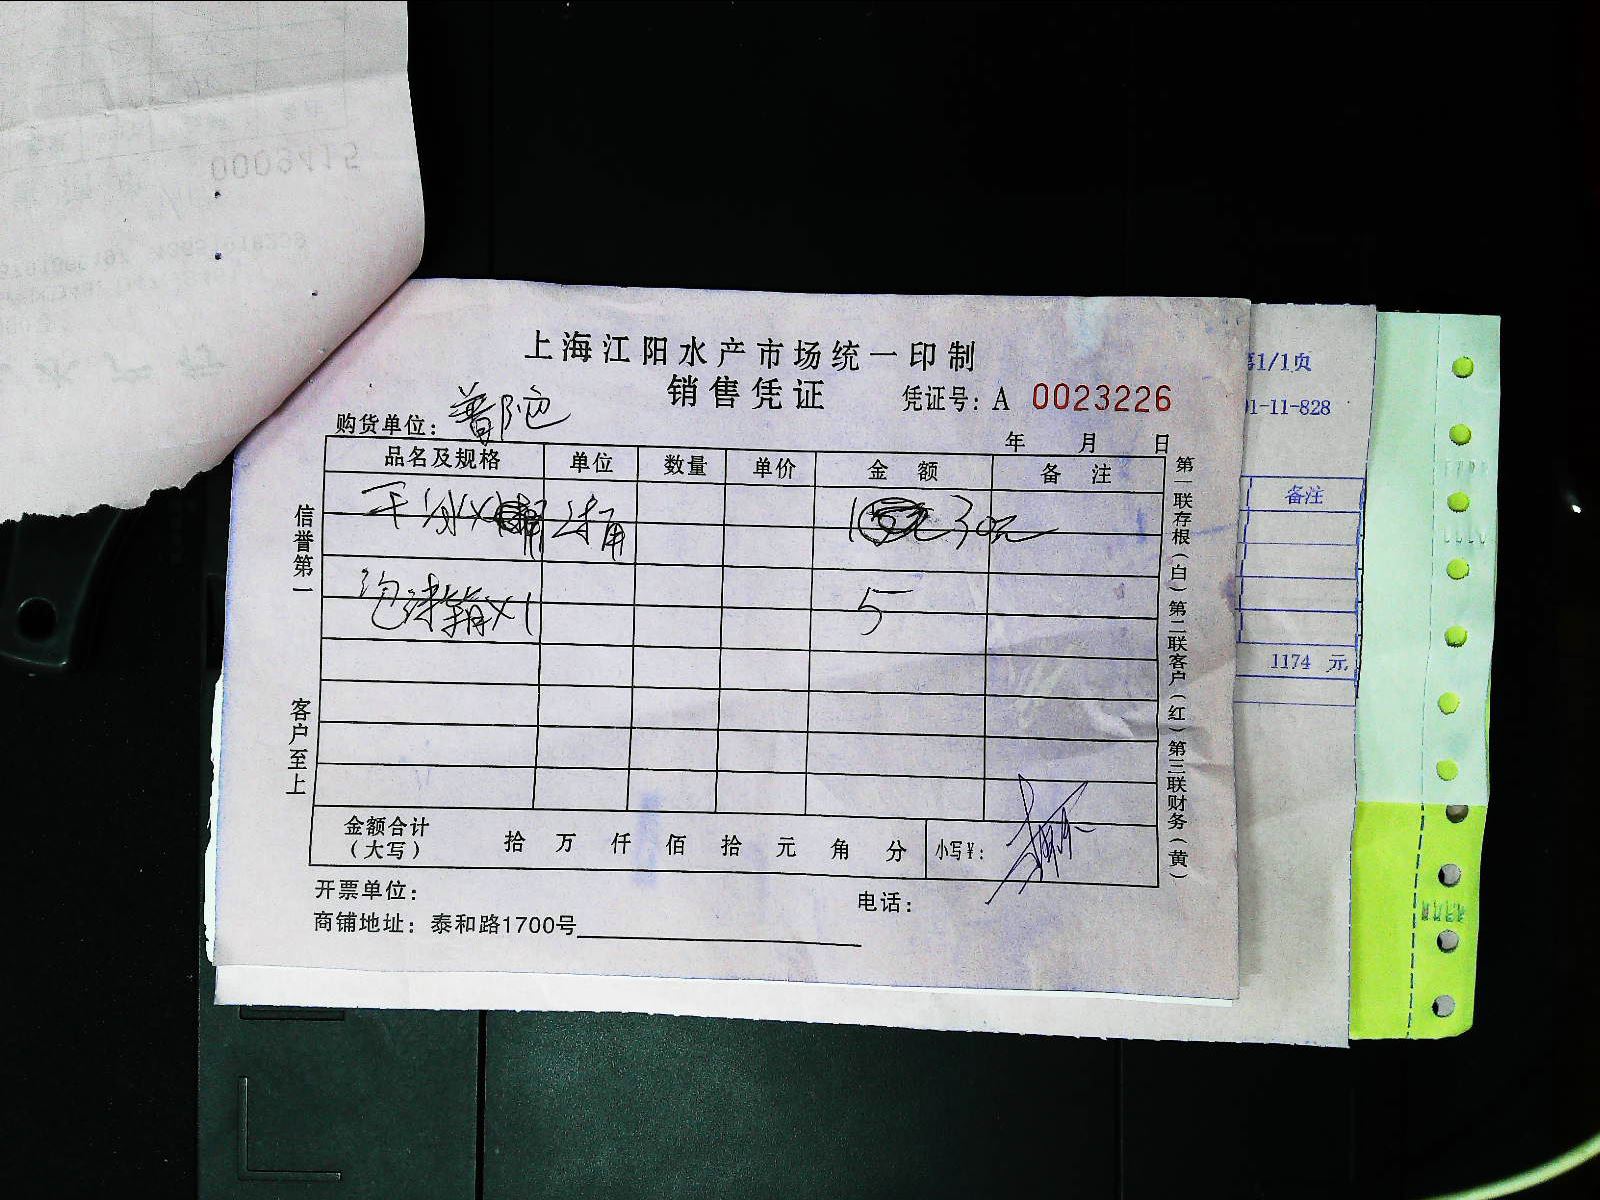 上海江阳水产市场统一印制
销售凭证
凭证号: A 0023226
购货单位: 普陀
年 月 日
品名及规格 单位 数量 单价 金额 备注
干冰X 30元
泡沫箱X1 5
金额合计(大写) 拾 万 仟 佰 拾 元 角 分 小写¥:
开票单位: 电话:
商铺地址: 泰和路1700号
信誉第一 客户至上
第一联存根(白)第二联客户(红)第三联财务(黄)
1/1页
1-11-828
备注
1174 元
0009415